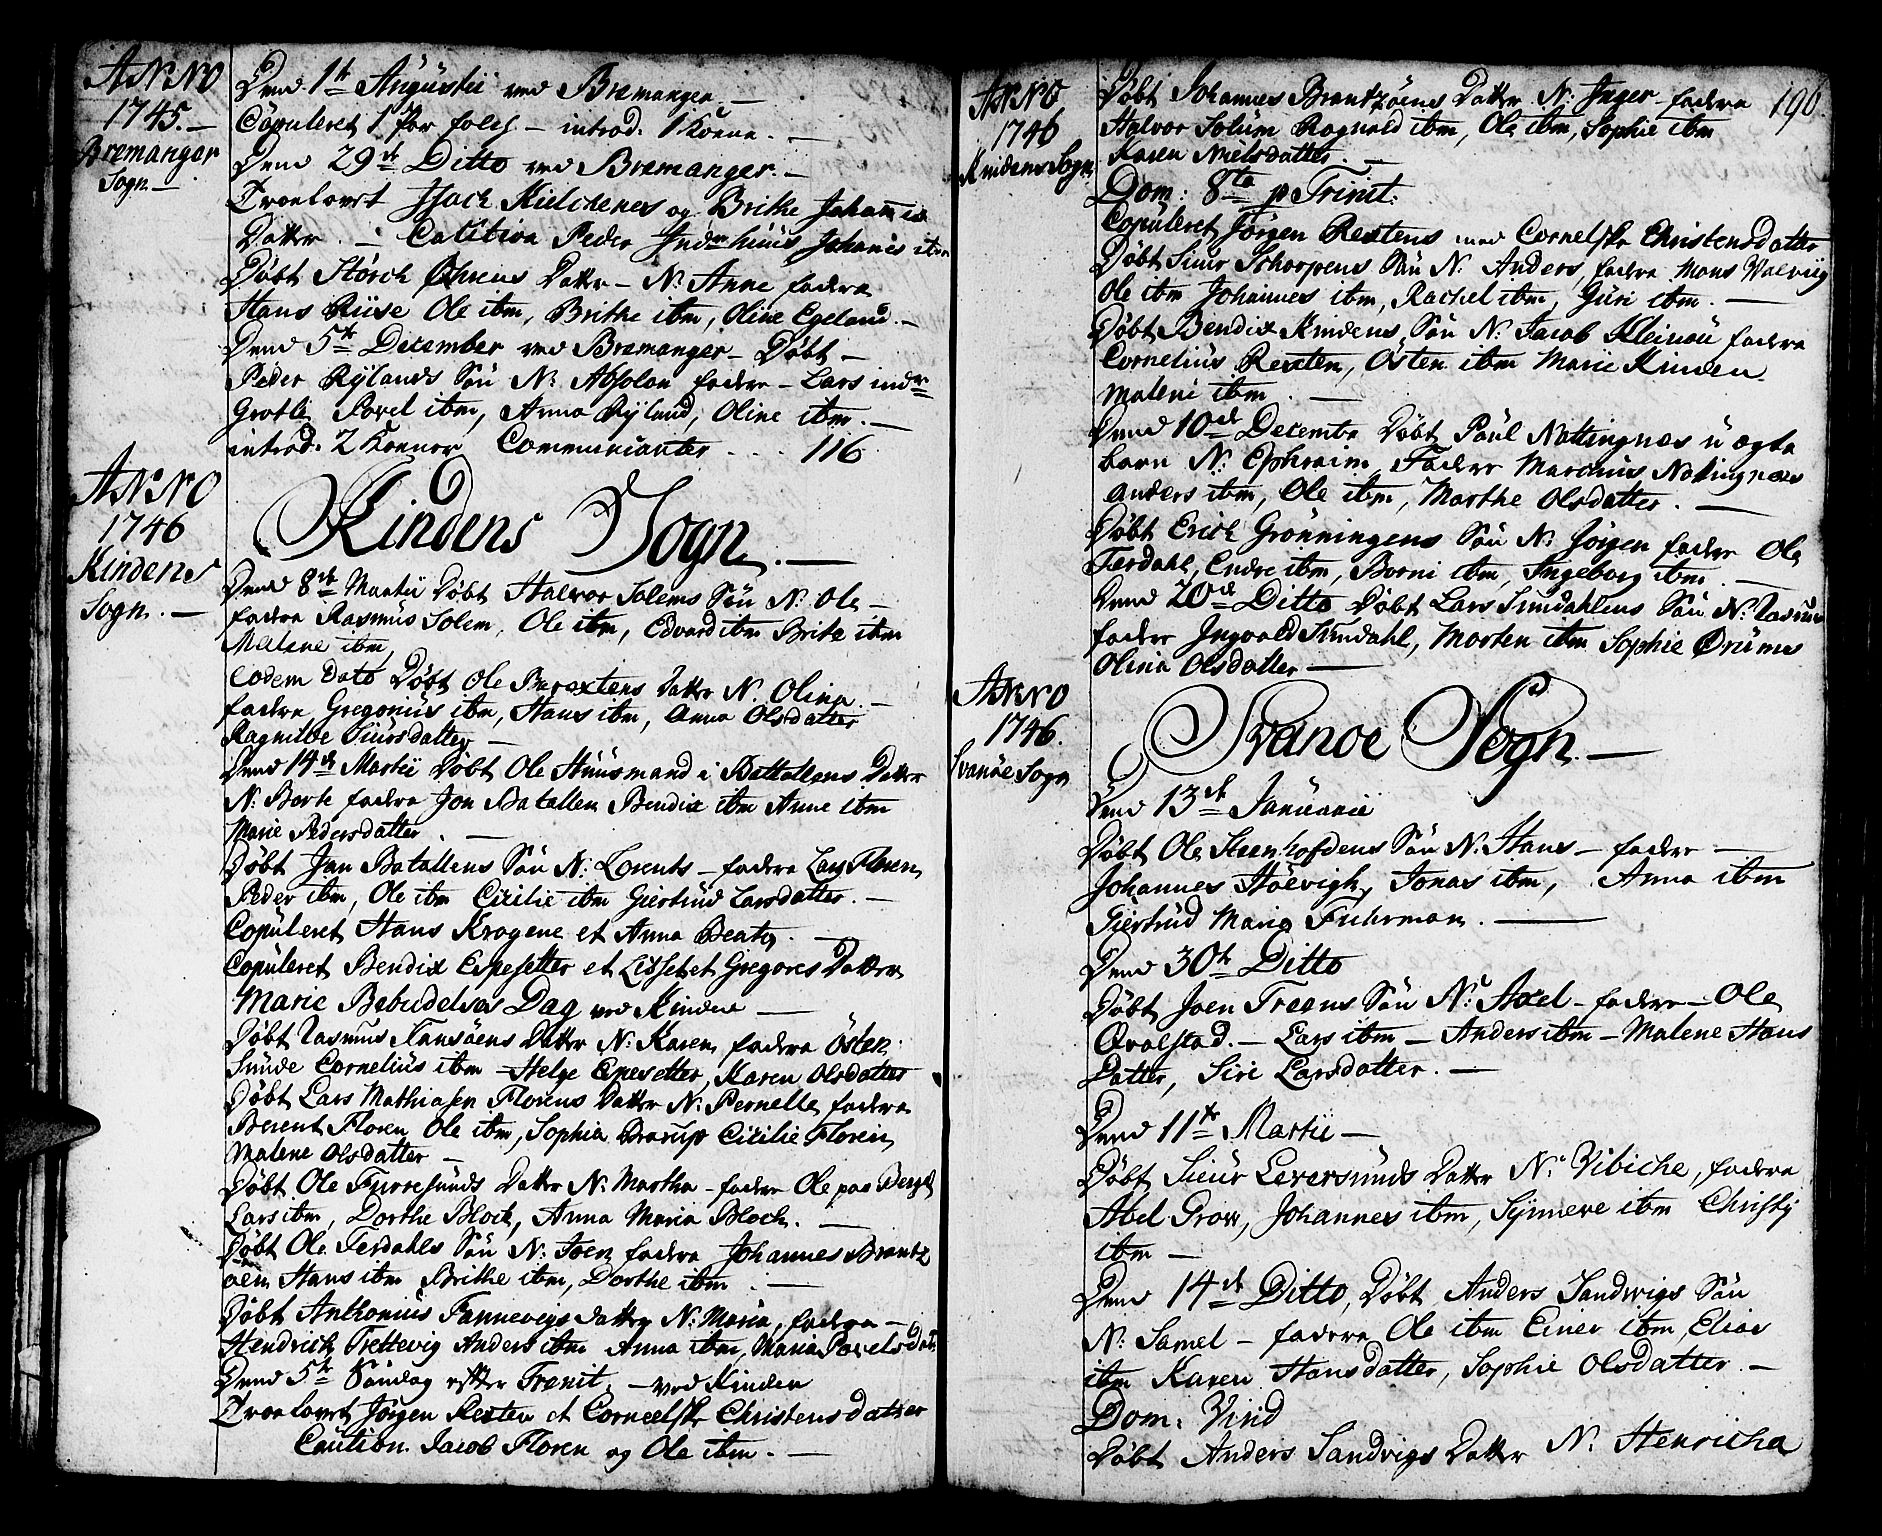 ANNO
1745. —
Bremanger
Sogn —
Dend 1te Augustii ved Bremanger. —
Copuleret 1 Par folch — introd. 1 Kone. —
Dend 29de Ditto ved Bremanger. —
Trolovet Isach Kielchenes og Brithe Johannis
Datter. — Cautition Peder Inderhuus Johanis ibm
Døbt Storch Øhrens Datter — N. Anne faddre
Hans Riise Ole ibm, Brithe ibm, Oline Egeland. —
Dend 5te December ved Bremanger — Døbt —
Peder Rylands Søn N: Absolon faddre — Lars indre
Grotle Povel ibm, Anna Ryland, Oline ibm. —
introd: 2 Konner Communicanter . . . 116
ANNO
1746
Kindens
Sogn. —
Kindens Sogn. —
Dend 8de Martii Døbt Halvor Solems Søn N: Ole —
faddre Rasmus Solem, Ole ibm, Edvard ibm Brite ibm
Malene ibm,
Eodem Dato Døbt Ole Barextens Datter N. Olina. —
faddre Gregorius ibm, Hans ibm, Anna Olsdatter
Ragnilde Siursdatter —
Dend 14de Martii Døbt Ole Huusmand i Battallens Datter
N. Borte faddre Jon Batallen Bendix ibm Anne ibm
Marie Pedersdatter. —
Døbt Jan Batallens Søn N: Lorents — faddre Lars Floren
Peder ibm, Ole ibm Cicilie ibm Giertrud Larsdatter. —
Copuleret Hans Krogene et Anna Beata. —
Copuleret Bendix Espesetter et Lissebet Gregores Datter
Marie Bebudelses Dag ved Kinden —
Døbt Rasmus Fansøens Datter N: Karen faddre Østen
Sunde Cornelius ibm — Helge Epesetter, Karen Olsdatter
Døbt Lars Mathiasen Florens Datter N: Pernelle, faddre
Berent Floren Ole ibm, Sophia Cicilie Floren
Malene Olsdatter —
Døbt Ole Furresunds Datter N: Martha — faddre Ole paa
Lars ibm, Dorthe Block, Anna Maria Bloch. —
Døbt Ole Ferdahls Søn N: Joen faddre Johannes Brantz
øen Hans ibm Brithe ibm, Dorthe ibm. —
Døbt Anthonius Fannevigs datter N: Maria, faddre —
Hendrich Trettevig Anders ibm Anna ibm, Maria Povelsdat
Dend 5te Søndag efter Trenit. — ved Kinden
Trolovet Jørgen Rexten et Cornelske Christens datter
Caution. Jacob Floren og Ole ibm. —
190.
ANNO
1746
Kindens Sogn
Døbt Johannes Brantzøens Datter N. Inger faddre
Halvor Solum Ragnald ibm, Ole ibm, Sophie ibm
Karen Nielsdatter. —
Dom: 8te p Trinit.
Copuleret Jørgen Rextens med Cornelske Christensdatter
Døbt Siuur Schorpens Søn N: Anders, faddre Mons
Ole ibm Johannes ibm, Rachel ibm, Guri ibm. —
Døbt Bendix Kindens Søn N: Jacob Kleinou faddre
Cornelius Rexten, Østen ibm Marie Kinden
Maleni ibm. —
Dend 10de Decembr Døbt Paul Nattingnes u ægte
barn N: Ephraim Faddre Marcus Notingnes
Anders ibm, Ole ibm, Marthe Olsdatter. —
Døbt Erich Grønningens Søn N: Jørgen faddre Ole
Ferdahl, Endre ibm, Borni ibm, Ingeborg ibm. —
Dend 20de Ditto Døbt Lars Sundahlens Søn N: Rasmus
faddre Ingvald Sundahl, Morten ibm Sophie
Olina Olsdatter —
ANNO
1746.
Svanøe Sogn
Svanoe Sogn. —
Dend 13de Januarii
Døbt Ole Steenhofdens Søn N. Hans — faddre —
Johannes Høevigh, Jonas ibm, Anna ibm
Giertrud Maria Fuhrman. —
Dend 30te Ditto
Døbt Joen Treens Søn N: Axel — faddre — Ole
Qvalstad. — Lars ibm — Anders ibm — Malene Hans
Datter, Siri Larsdatter. —
Dend 11te Martii —
Døbt Siuur Leversunds Datter N: Vibiche, faddre
Abel Grow, Johannes ibm, Synneve ibm Christy
ibm —
Dend 14de Ditto, Døbt Anders Sandvigs Søn
N: Samel — faddre Ole ibm Einer ibm, Elias
ibm Karen Hansdatter, Sophie Olsdatter. —
Dom: Vind
Døbt Anders Sandvigs Datter N: Henricha